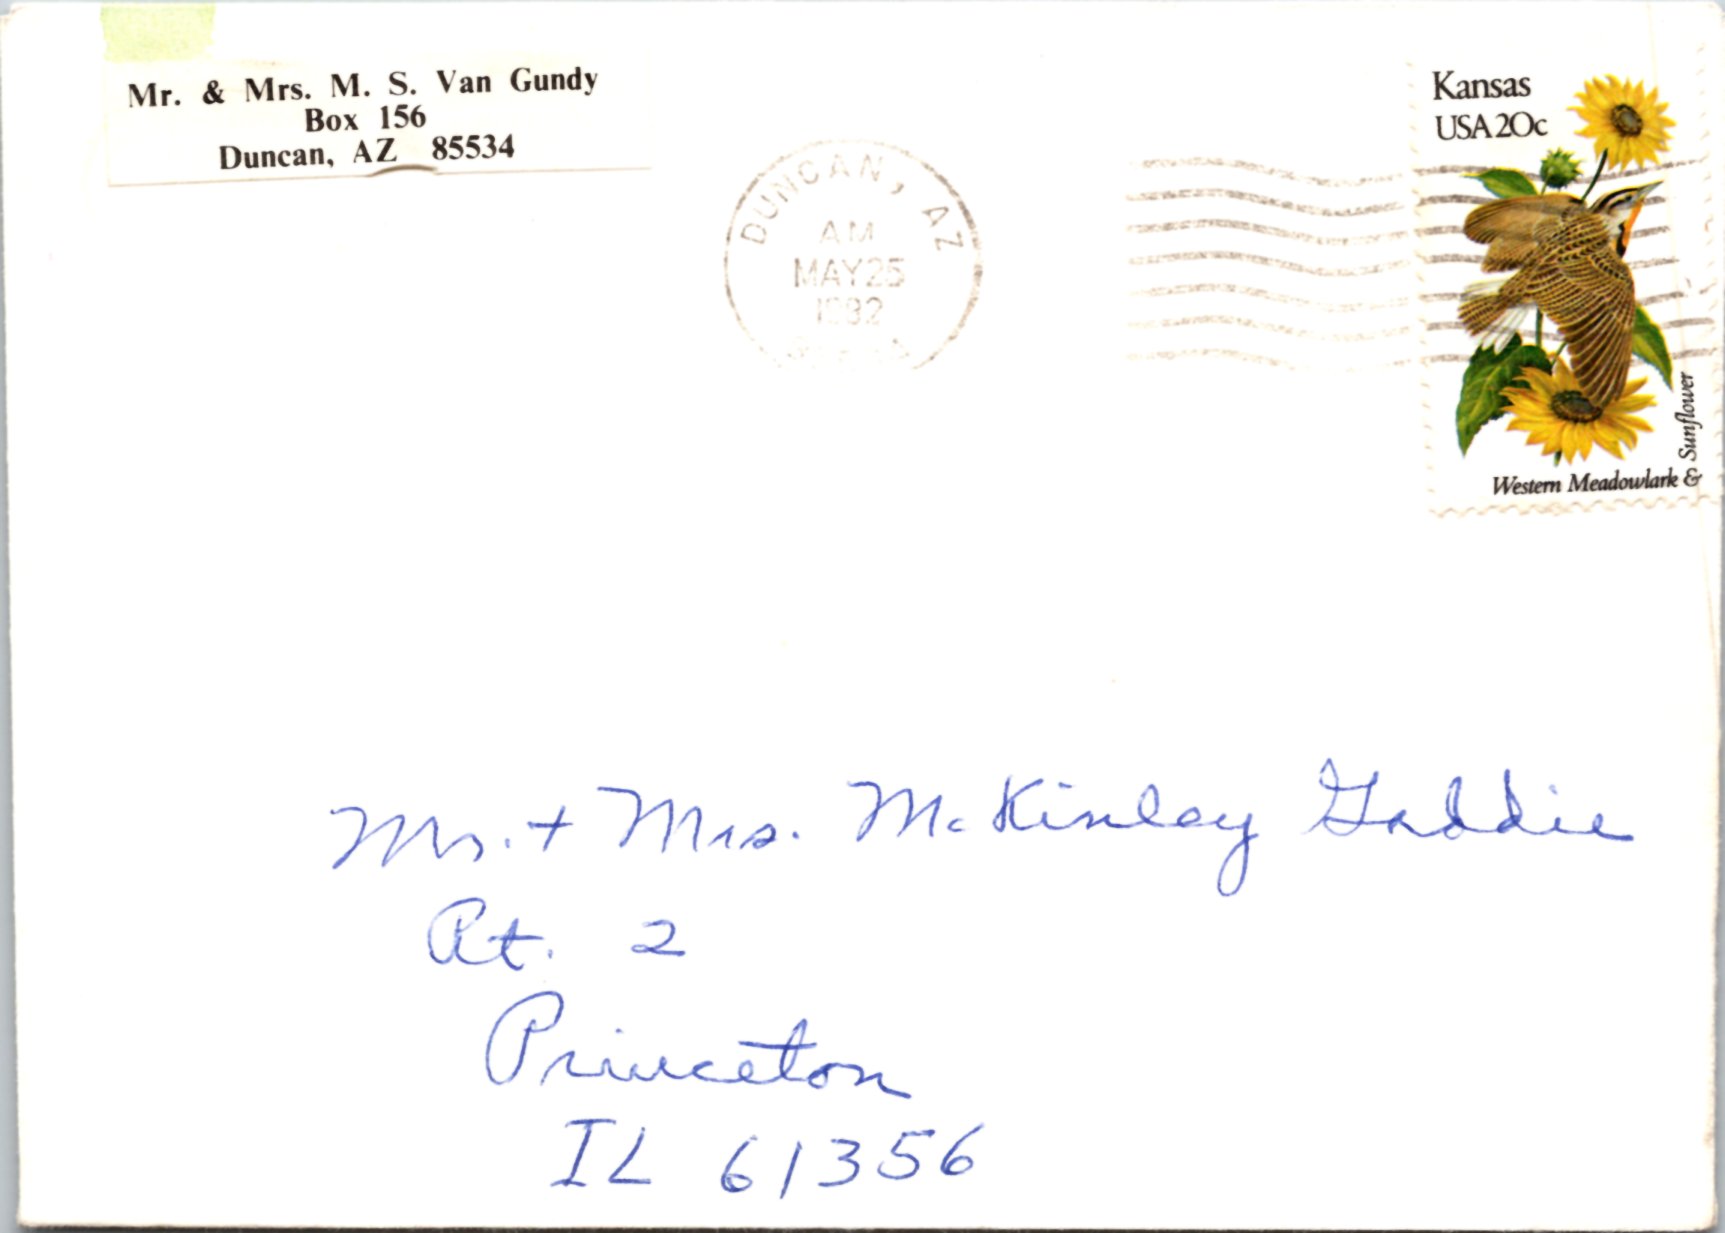 Mr. & Mrs. M. S. Van Gundy
Box 156
Duncan, AZ 85534
DUNCAN, AZ
AM
MAY 25
1982
Kansas
USA 20c
Western Meadowlark & Sunflower
Mr. + Mrs. McKinley Gaddie
Rt. 2
Princeton
IL 61356